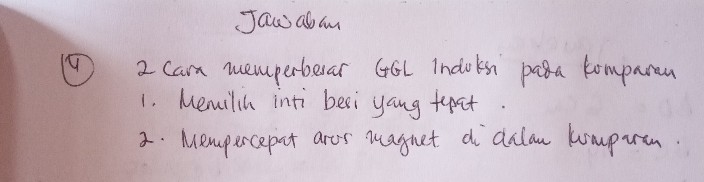 Jawaban
4 2 Cara memperbesar GGL Induksi pada komparan
1. Memilih inti besi yang tepat.
2. Mempercepat arus magnet di dalam kumparan.